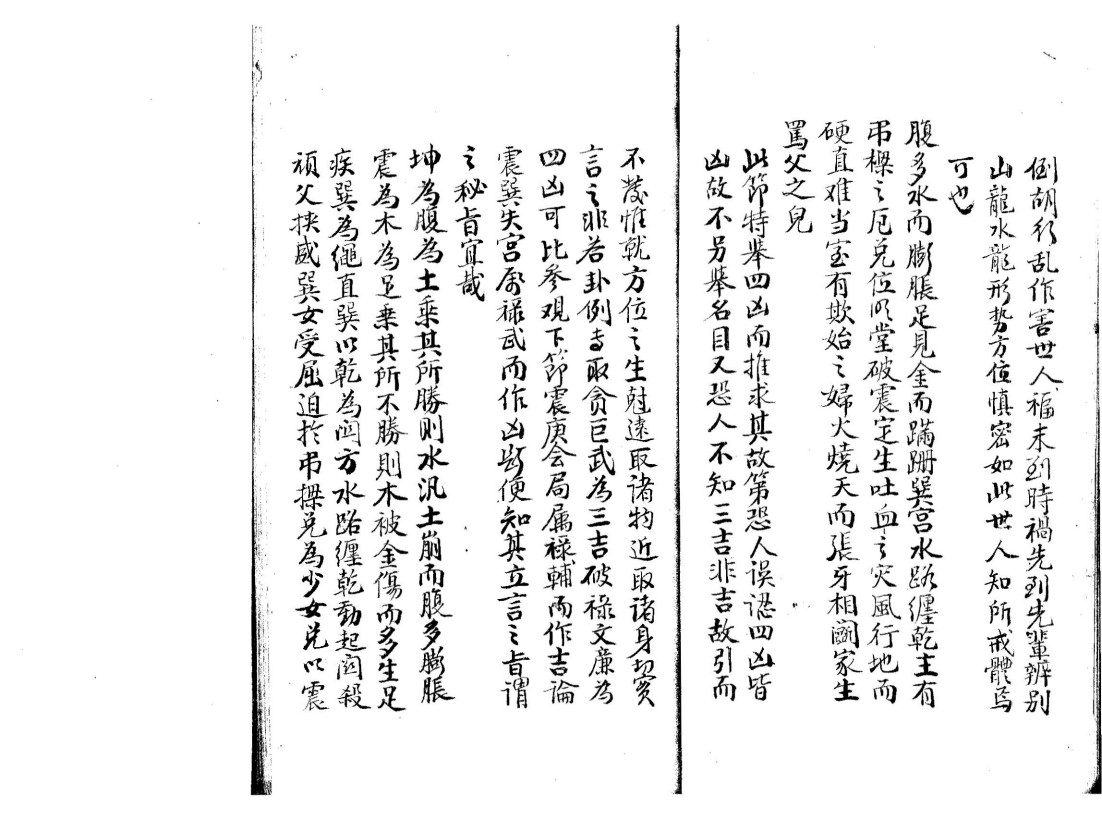 倒胡行乱作害世人福未到時禍先到先輩辨别
山龍水龍形势方位慎密如此世人知所戒體焉
可也
腹多水而膨脹足見金而蹣跚巽宫水路纏乾主有
吊樑之厄兑位明堂破震定生吐血之灾風行地而
硬直难当室有欺姑之婦火燒天而張牙相鬭家生
罵父之兒
此節特舉四凶而推求其故第恐人误認四凶皆
凶故不另舉名目又恐人不知三吉非吉故引而
不發惟就方位之生尅遠取诸物近取诸身切实
言之非若卦例专取贪巨武為三吉破禄文廉為
四凶可比参观下節震庚会局属禄輔而作吉論
震巽失宫属禄武而作凶断便知其立言之旨谓
之秘旨宜哉
坤為腹為土乘其所勝则水汎土崩而腹多膨脹
震為木為足乘其所不勝則木被金傷而多生足
疾巽為繩直巽以乾為向方水路纏乾動起向殺
頑父挟威巽女受屈迫於吊樑兑為少女兑以震